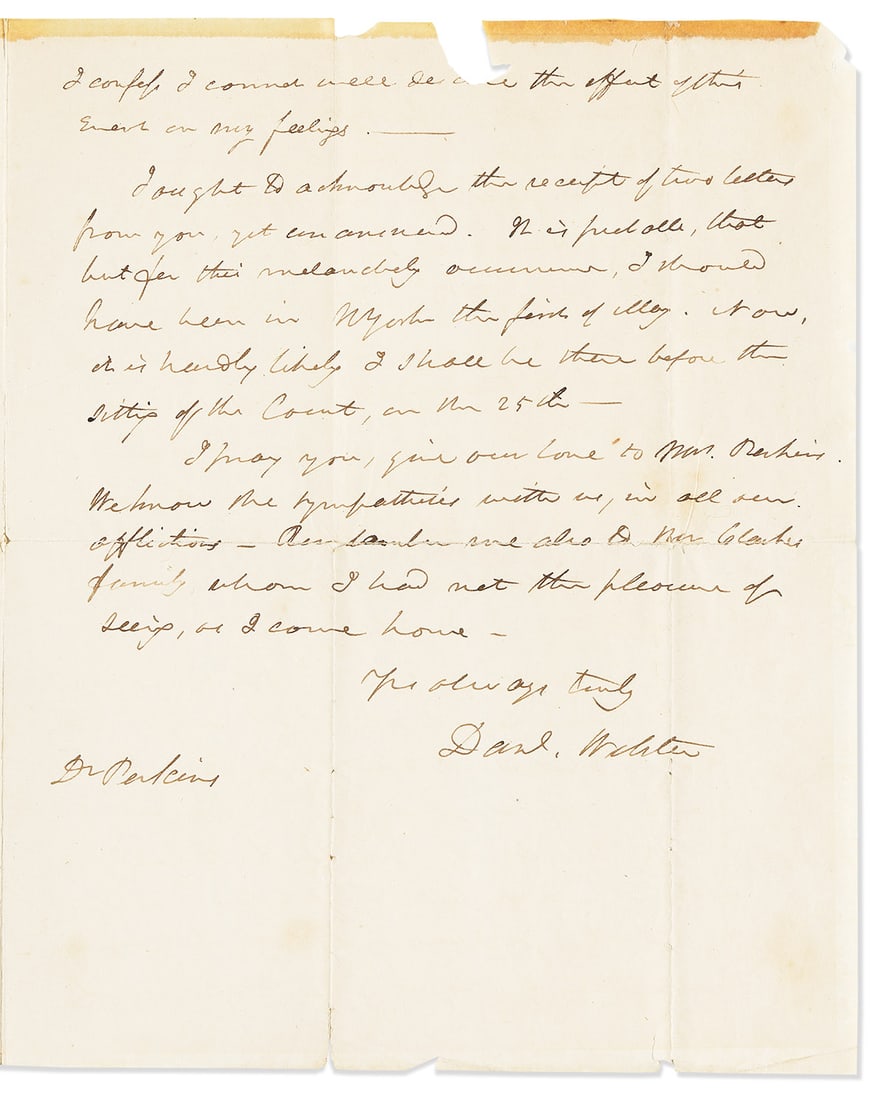 I confess I cannot well de e the effect of this
Event on my feelings. ——
I ought to acknowledge the receipt of two letters
from you, yet unanswered. It is probable, that
but for this melancholy occurrence, I should
have been in NYork the first of May. Now,
it is hardly likely I shall be there before the
sitting of the Court, on the 25th —
I pray you, give our love to Mrs. Perkins.
We know she sympathises with us, in all our
afflictions — Remember me also to Mr
family whom I had not the pleasure of
seeing, as I came home —
Yrs always truly
Danl. Webster
Dr Perkins